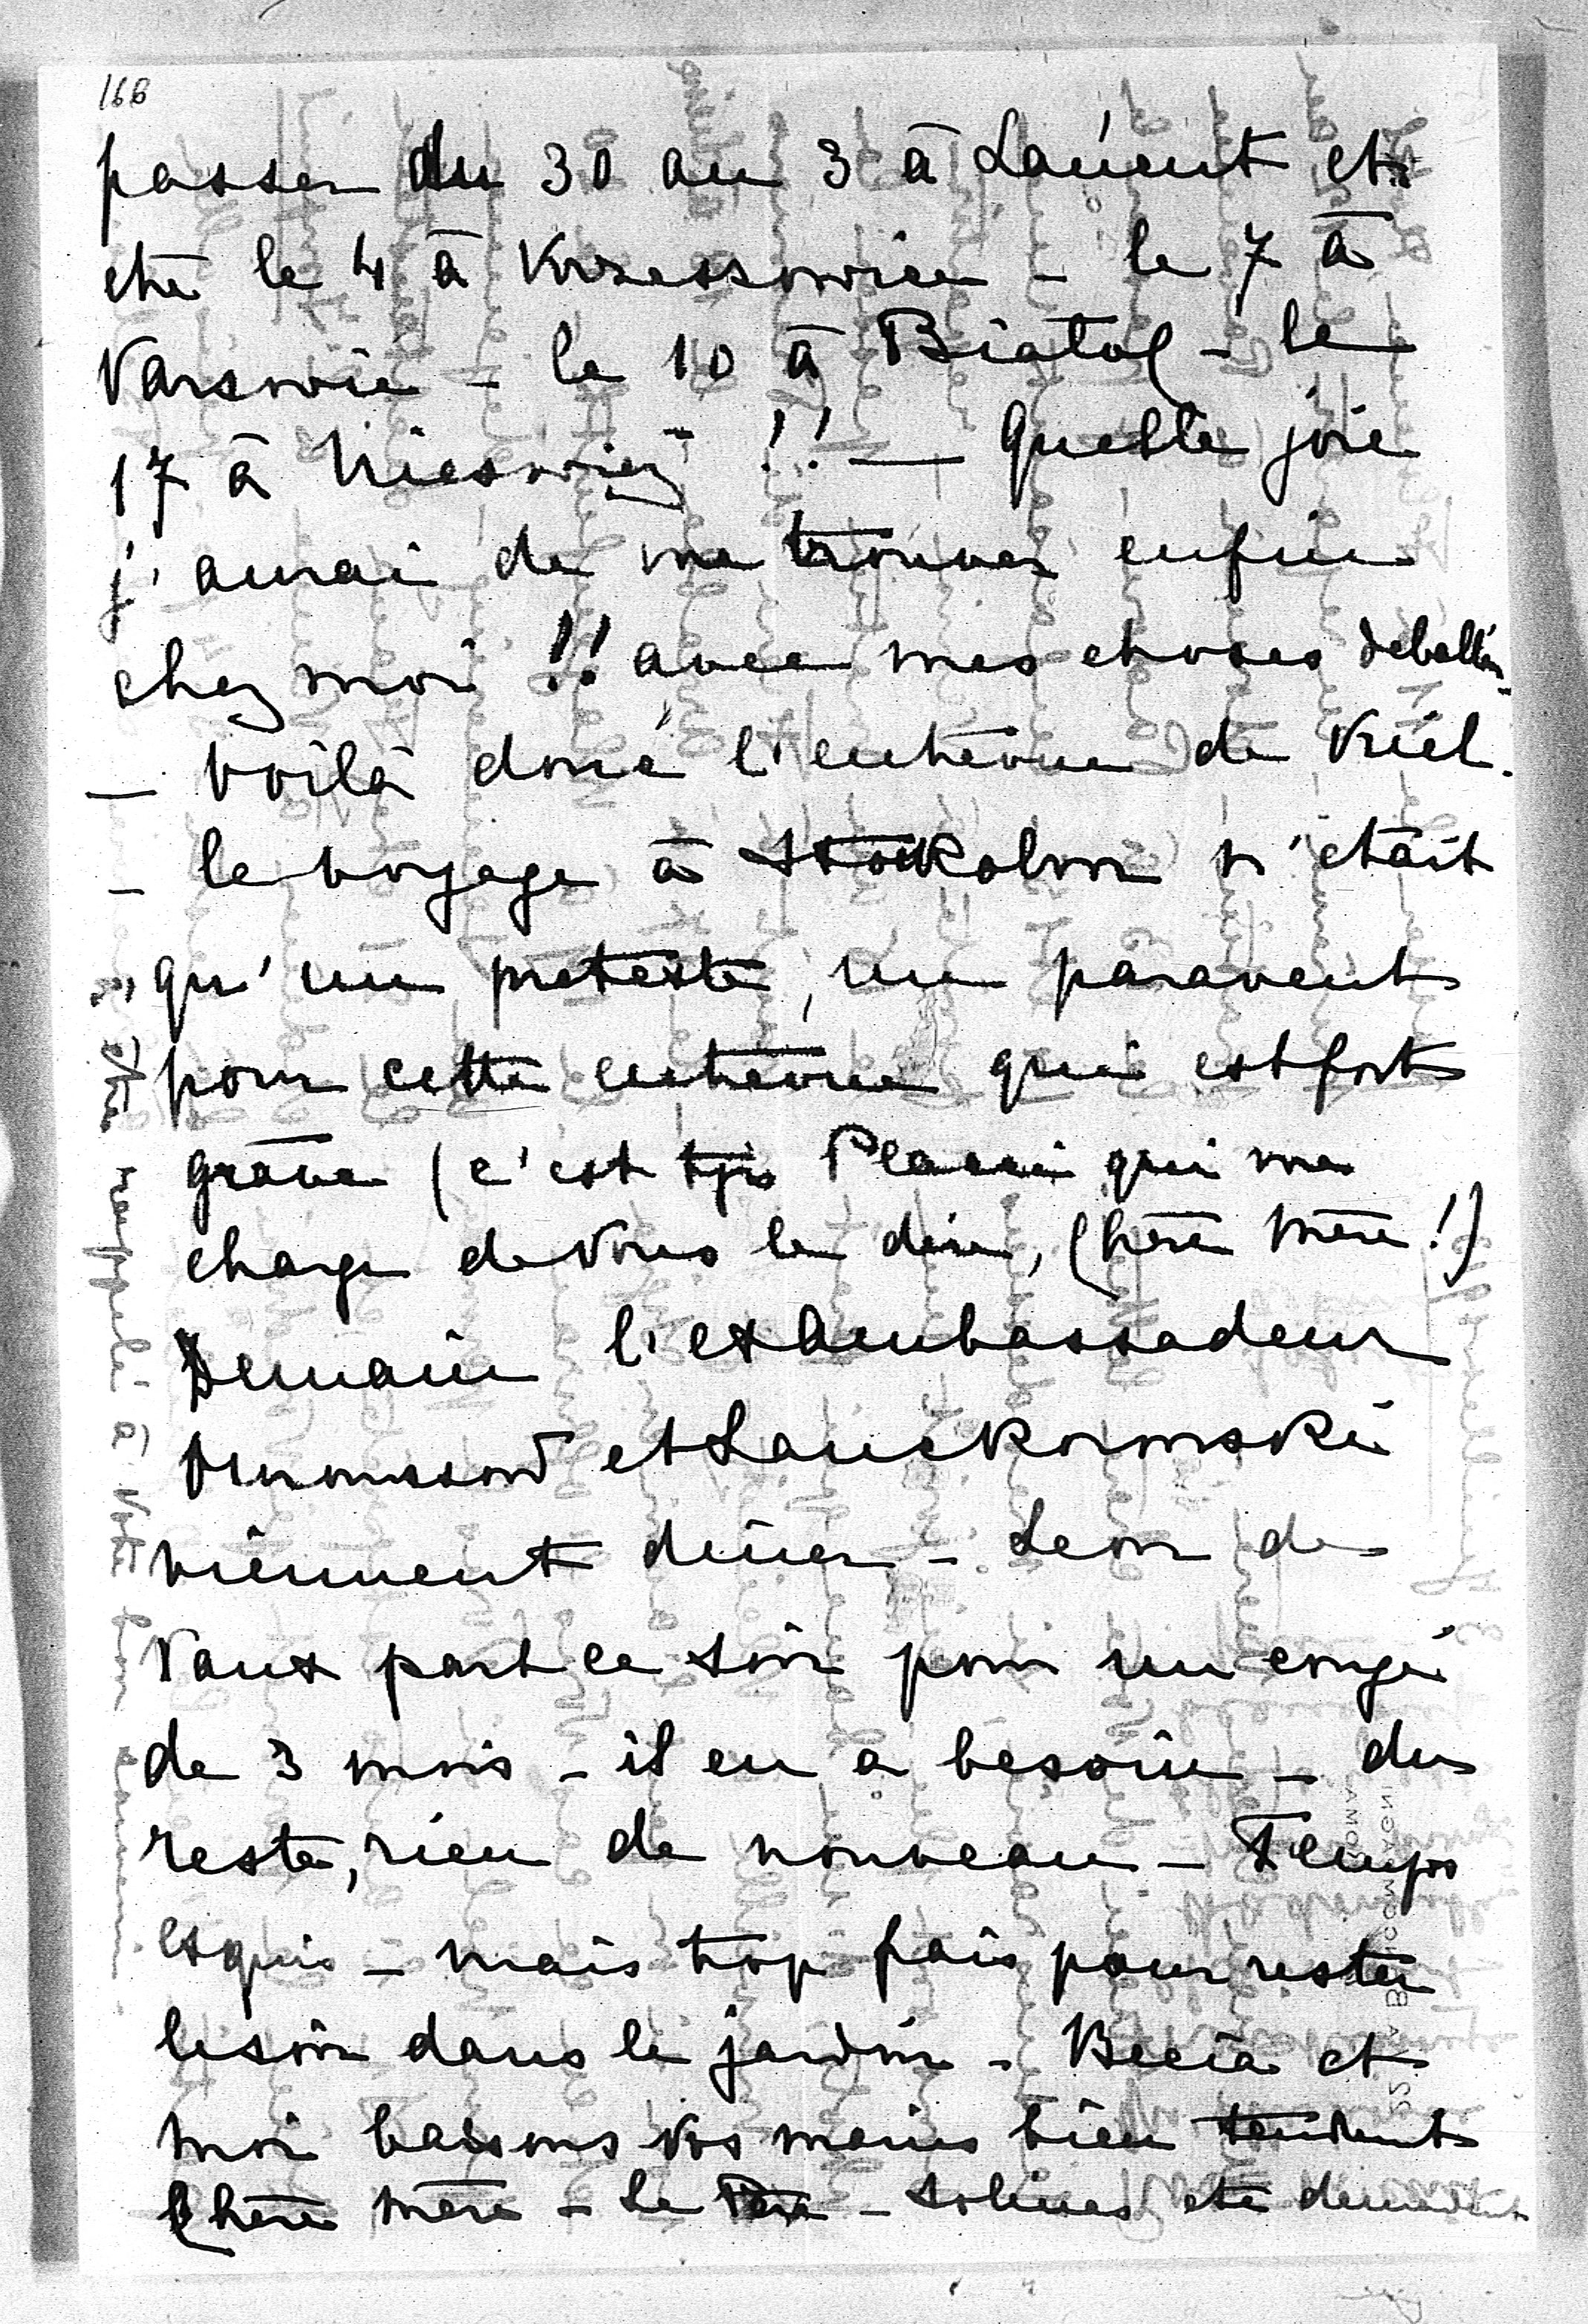 166
passer du 30 au 3 à Lancut et
etre le 4 à Krzessowice - le 7 à
Varsovie - le 10 à Biatol - le
17 à Nieswiez !! — Quelle joie
j'aurai de me trouver enfin
chez moi !! avec mes choses deballées
— Voilà donc l'entrevue de Kiel.
- le voyage à Stockolm n'était
qu'un preteste, un paravent
pour cette entrevue qui est fort
grave (c'est tjrs qui me
charge de Vous le dire, Chère Mère!)
Demain l'exAmbassadeur
et Lanckoronski
viennent diner - Leon de
Vaux part ce soir pour un congé
de 3 mois - il en a besoin - du
reste, rien de nouveau - Temps
exquis - mais trop frais pour rester
le soir dans le jardin - Biċia et
moi baisons Vos mains bien tendrent
Chère Mère - Le - Solines etc
rappelé à Votre